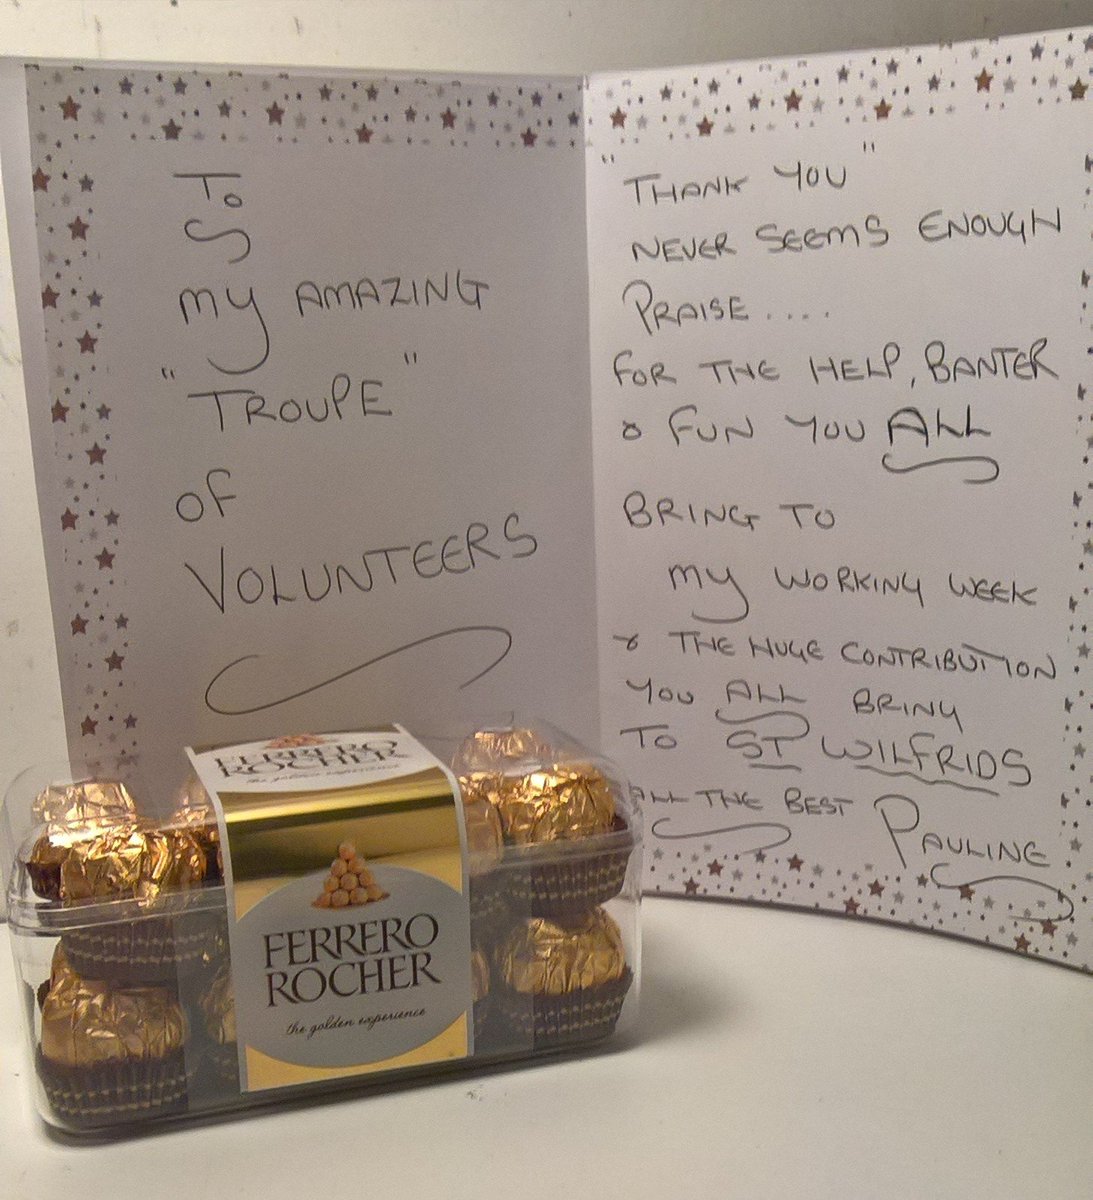 To
my AMAZING
"TROUPE"
of
VOLUNTEERS
"THANK YOU"
NEVER SEEMS ENOUGH
PRAISE....
FOR THE HELP, BANTER
& FUN YOU ALL
BRING TO
my WORKING WEEK
& THE HUGE CONTRIBUTION
YOU ALL BRING
TO ST WILFRIDS
ALL THE BEST PAULINE
FERRERO
ROCHER
the golden experience
FERRERO
ROCHER
the golden experience